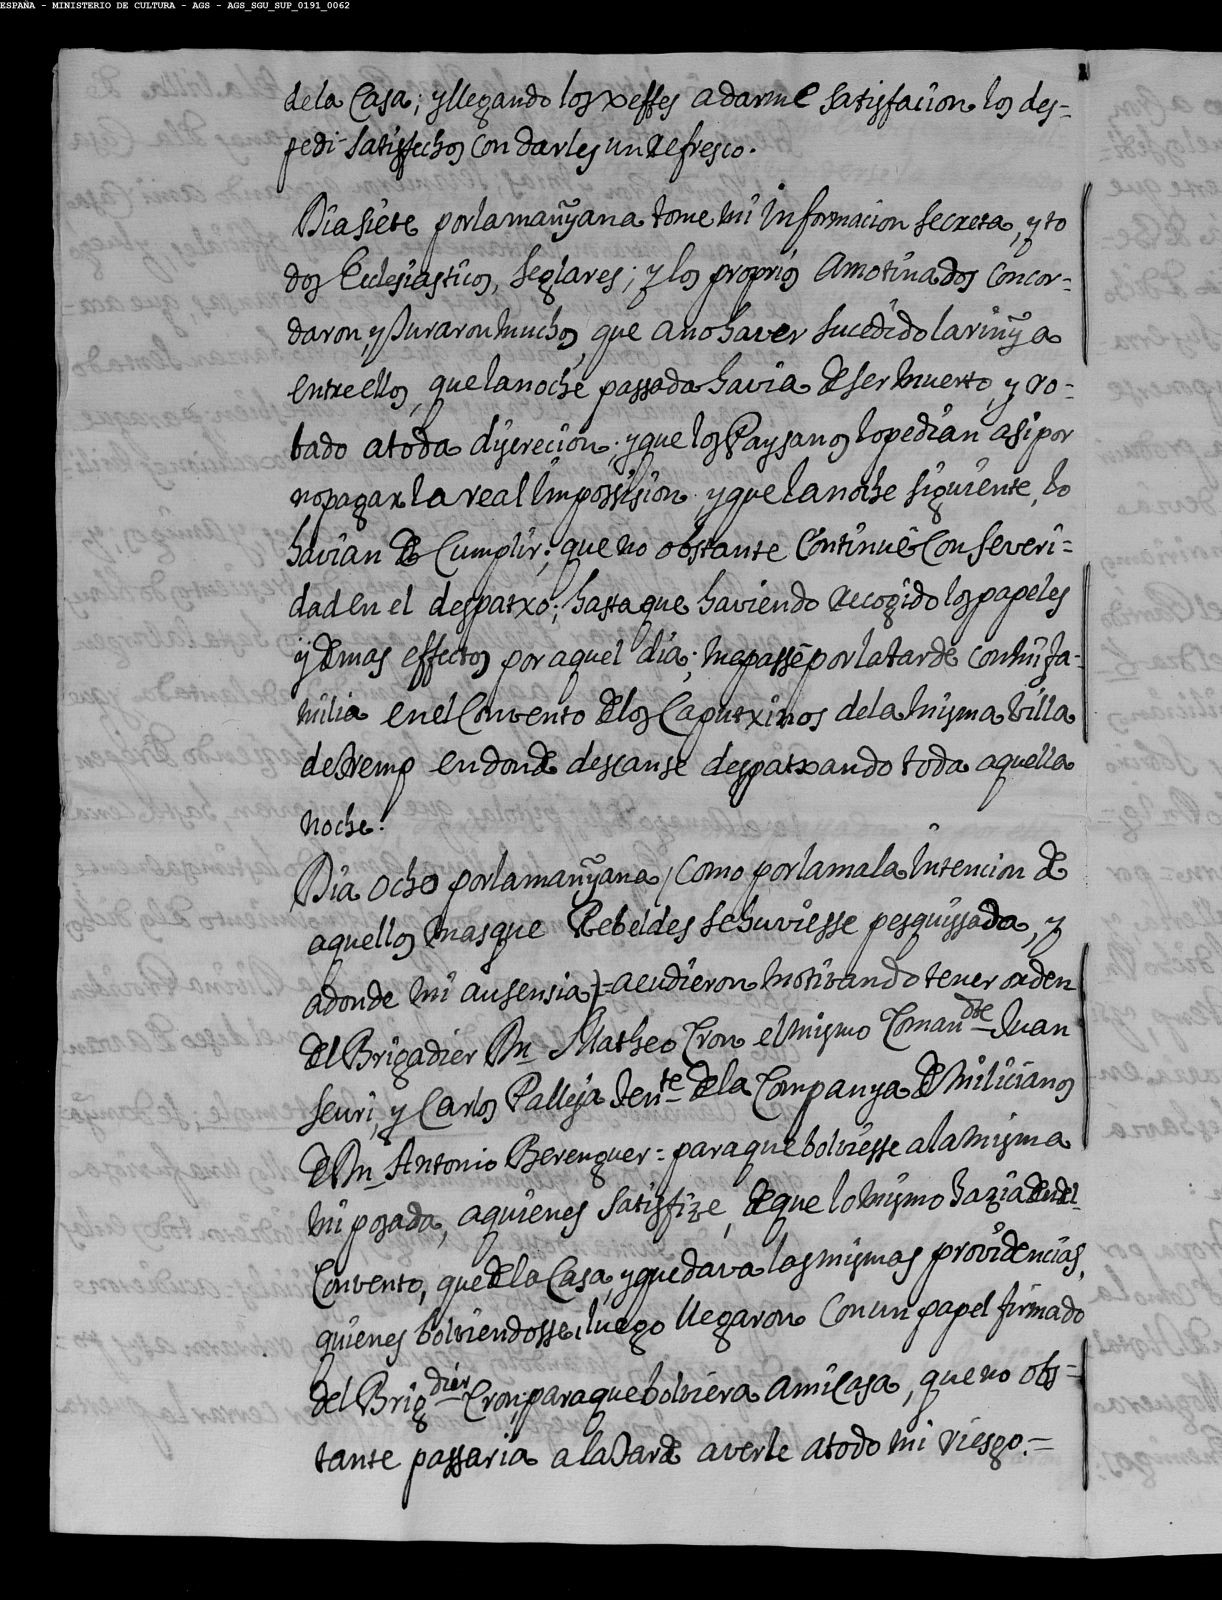 ESPAÑA - MINISTERIO DE CULTURA - AGS - AGS_SGU_SUP_0191_0062
dela Casa; y llegando los xeffes a darme satisfacion los des-
pedi satisfechos con darles un refresco.
Dia siete por la mañyana tome mi informacion secreta, y to
dos Ecclesiasticos, seglares; y los proprios Amotinados concor-
daron, y Juraron muchos, que a no haver sucedido la rinÿa
entre ellos, que la noche passada havia de ser muerto, y ro-
bado a toda discrecion; y que los Paysanos lo pedian asi por
no pagar la real Impossision; y que la noche siguiente, lo
havian de Cumplir; que no obstante Continuê con severi=
dad en el despatxo; hasta que haviendo recogido los papeles
y demas effectos por aquel dia; me passê por la tarde con mi fa-
milia en el Convento de los Caputxinos de la misma Villa
de Tremp en donde descanse despatxando toda aquella
noche.
Dia ocho por la mañyana (Como por la mala intencion de
aquellos mas que Rebeldes se huviesse pesquissado, y
adonde mi ausensia)=acudieron motivando tener orden
del Brigadier Dn Matheo Cron el mismo Comandte Juan
Seuri, y Carlos Palleja tente de la Companya de Milicianos
de Dn Antonio Berenguer= para que bolviesse a la misma
mi posada, a quienes satisfize, de que lo mismo hazia den del
Convento, que de la Casa, y quedava las mismas providencias,
quienes bolviendosse, luego llegaron con un papel firmado
del Brigdier Cron; para que bolviera a mi Casa, que no obs=
tante passaria a la tarde a verle a todo mi riesgo.=